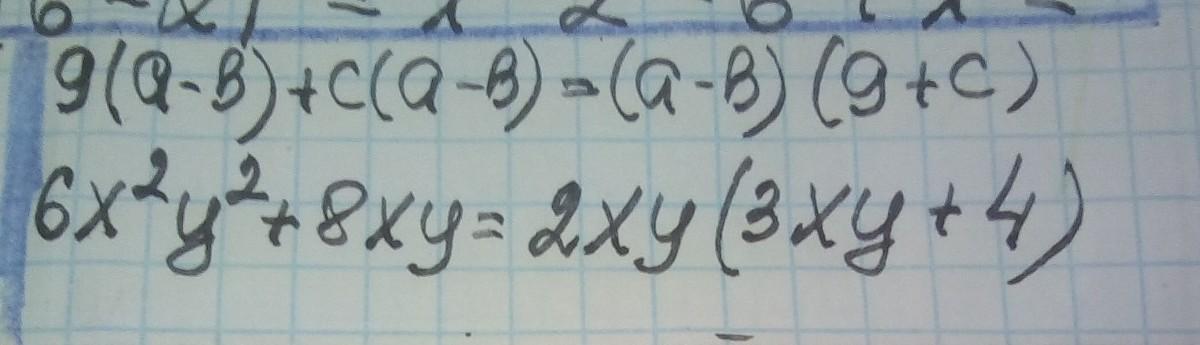 9(a-в)+c(a-в)=(a-в)(9+c)
6x²y²+8xy=2xy(3xy+4)